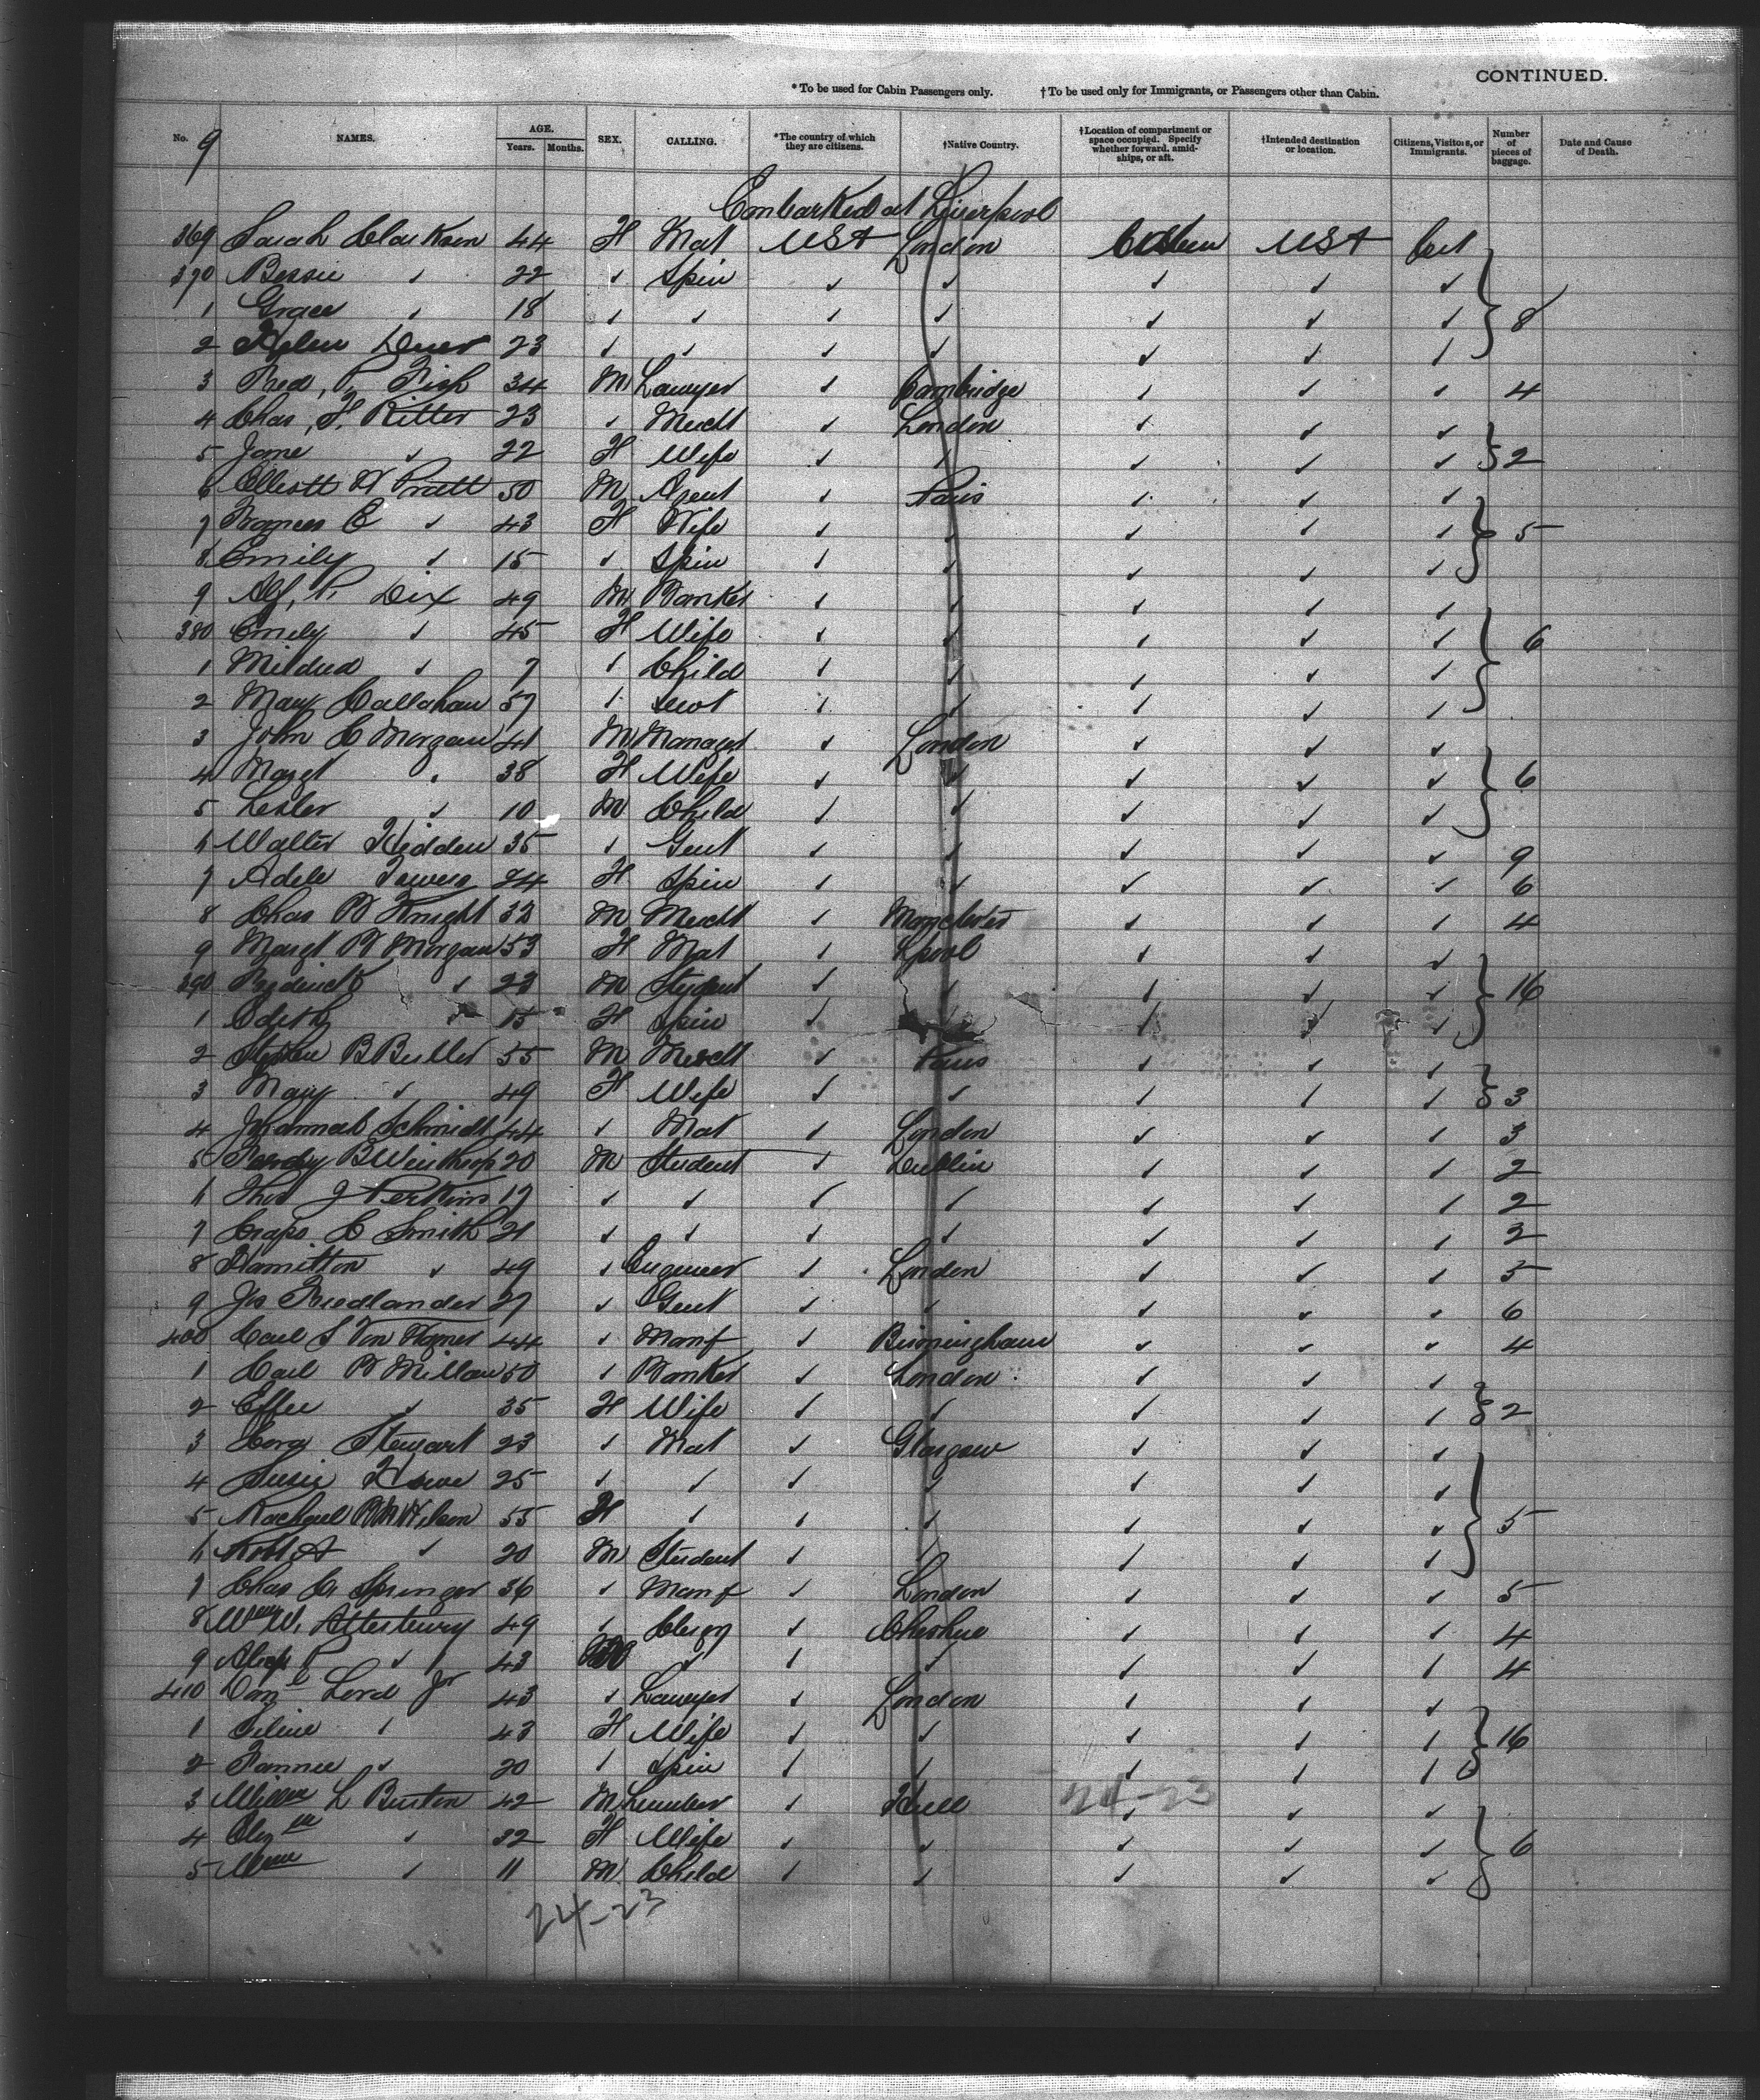 CONTINUED.
*To be used for Cabin Passengers only. †To be used only for Immigrants, or Passengers other than Cabin.
No. 9 NAMES. AGE. Years. Months. SEX. CALLING. *The country of which they are citizens. †Native Country. †Location of compartment or space occupied. Specify whether forward, amidships, or aft. †Intended destination or location. Citizens, Visitors, or Immigrants. Number of pieces of baggage. Date and Cause of Death.
Embarked at Liverpool
369 Sarah Clarkson 44 F Mat USA London USA Cit
370 Bessie ✓ 22 ✓ Spin ✓ ✓ ✓ ✓ ✓
1 Grace ✓ 18 ✓ ✓ ✓ ✓ ✓ ✓ ✓ 8
2 Helen 23 ✓ ✓ ✓ ✓ ✓ ✓ ✓
3 Fred, P. Fish 34 M Lawyer ✓ Cambridge ✓ ✓ ✓ 4
4 Chas, F. Ritter 23 ✓ Mercht ✓ London ✓ ✓ ✓
5 Jane ✓ 22 F Wife ✓ ✓ ✓ ✓ ✓ 2
6 Elliott W Pratt 50 M Agent ✓ Paris ✓ ✓ ✓
7 Frances E ✓ 43 F Wife ✓ ✓ ✓ ✓ ✓ 5
8 Emily ✓ 15 ✓ Spin ✓ ✓ ✓ ✓ ✓
9 Alf, P. Dix 49 M Banker ✓ ✓ ✓ ✓ ✓
380 Emily ✓ 45 F Wife ✓ ✓ ✓ ✓ ✓ 6
1 Mildred ✓ 7 ✓ Child ✓ ✓ ✓ ✓ ✓
2 Mary Callahan 57 ✓ Servt ✓ ✓ ✓ ✓ ✓
3 John C Morgan 41 M Manager ✓ London ✓ ✓ ✓
4 Margt ✓ 38 F Wife ✓ ✓ ✓ ✓ ✓ 6
5 Lesler ✓ 10 M Child ✓ ✓ ✓ ✓ ✓
6 Walter Hidden 35 ✓ Gent ✓ ✓ ✓ ✓ ✓ 9
7 Adele Towers 24 F Spin ✓ ✓ ✓ ✓ ✓ 6
8 Chas W Knight 32 M Mercht ✓ Manchester ✓ ✓ ✓ 4
9 Margt W Morgan 53 F Mat ✓ Lpool ✓ ✓ ✓
390 Frederick ✓ 23 M Student ✓ ✓ ✓ ✓ ✓ 16
1 Edith ✓ 15 F Spin ✓ ✓ ✓ ✓
2 Stephen B Butler 55 M Mercht ✓ Paris ✓ ✓ ✓
3 Mary ✓ 49 F Wife ✓ ✓ ✓ ✓ ✓ 3
4 Johannah Schmidt 44 ✓ Mat ✓ London ✓ ✓ ✓ 3
5 B Winthrop 20 M Student ✓ Dublin ✓ ✓ ✓ 2
6 Thos J Perkins 19 ✓ ✓ ✓ ✓ ✓ ✓ ✓ 2
7 C Smith 21 ✓ ✓ ✓ ✓ ✓ ✓ ✓ 2
8 Hamilton ✓ 49 ✓ Engineer ✓ London ✓ ✓ ✓ 5
9 Js Friedlander 27 ✓ Gent ✓ ✓ ✓ ✓ ✓ 6
400 Carl S Von 44 ✓ Manf ✓ Birmingham ✓ ✓ ✓ 4
1 Carl W Millan 50 ✓ Banker ✓ London ✓ ✓ ✓
2 Effie ✓ 35 F Wife ✓ ✓ ✓ ✓ ✓ 2
3 Cora Stewart 23 ✓ Mat ✓ Glasgow ✓ ✓ ✓
4 Susie Howe 25 ✓ ✓ ✓ ✓ ✓ ✓ ✓
5 Rachael Wilson 55 F ✓ ✓ ✓ ✓ ✓ ✓ 5
6 Robt A ✓ 20 M Student ✓ ✓ ✓ ✓ ✓
7 Chas C Springer 36 ✓ Manf ✓ London ✓ ✓ ✓ 5
8 Wm W. Atterbury 49 ✓ Clergy ✓ Cheshire ✓ ✓ ✓ 4
9 P ✓ 43 ✓ ✓ ✓ ✓ ✓ ✓ 4
410 Danl Lord Jr 43 ✓ Lawyer ✓ London ✓ ✓ ✓
1 Silvie ✓ 43 F Wife ✓ ✓ ✓ ✓ ✓ 16
2 Fannie ✓ 20 ✓ Spin ✓ ✓ ✓ ✓ ✓
3 L Burton 42 M Lumber ✓ Hull 24-23 ✓ ✓ ✓
4 Elizth ✓ 32 F Wife ✓ ✓ ✓ ✓ ✓ 6
5 ✓ 11 M Child ✓ ✓ ✓ ✓ ✓
24-23